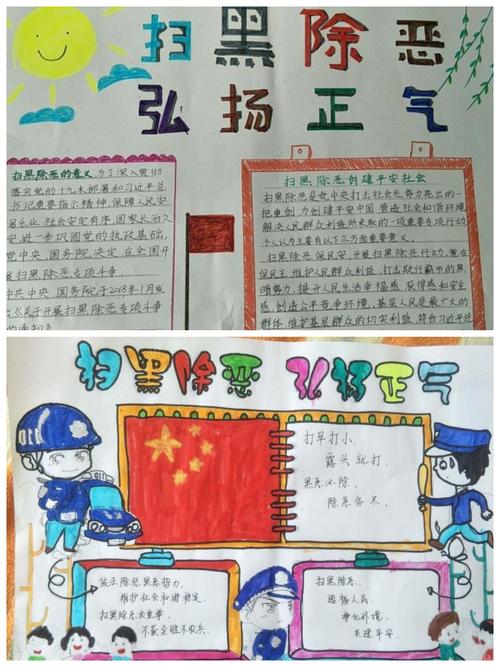 扫黑除恶
弘扬正气
扫黑除恶的意义:为了深入贯彻
落实党的十九大部署和习近平总
书记重要指示精神,保障人民安
居乐业,社会安定有序,国家长治久
安,进一步巩固党的执政基础,
党中央、国务院决定,在全国开
展扫黑除恶专项斗争。
中共中央、国务院于2018年1月发
出《关于开展扫黑除恶专项斗争
的通知》
扫黑除恶创建平安社会
扫黑除恶是党中央打击社会恶势力亮出的一
把重剑,为创建平安中国,营造社会和谐环境
解决人民群众利益所采取的一项重要专项行动
个人认为主要有以下三方面重要意义。
扫黑除恶,保民安,开展扫黑除恶行动,意在
保民主,维护人民群众利益,打击欺行霸市的黑
暗势力,提升人民生活幸福感,获得感和安全
感,创造公平竞争环境,基层人民是最广大的
群体,维护基层群众的切实利益,符合习近平总
扫黑除恶 弘扬正气
打早打小,
露头就打,
黑恶必除,
除恶务尽.
依法除恶黑恶势力,
维护社会和谐稳定.
扫黑除恶出重拳,
不获全胜不收兵.
扫黑除恶,
造福人民,
净化环境,
共建平安.